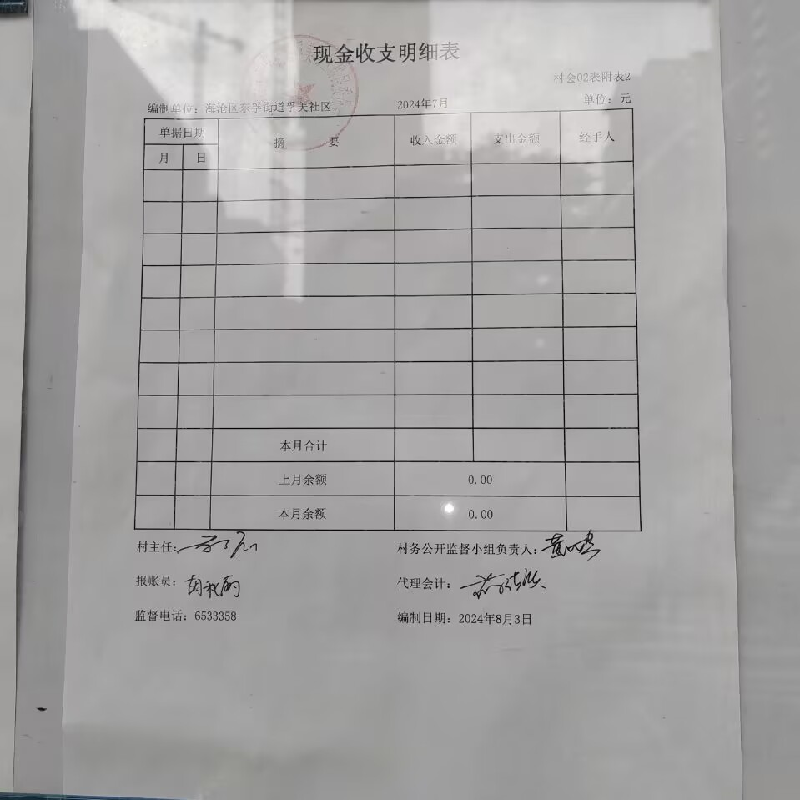 现金收支明细表
村会02表附表2
编制单位：海沧区嵩屿街道孚天社区 2024年7月 单位：元
单据日期 摘 要 收入金额 支出金额 经手人
月 日
本月合计
上月余额 0.00
本月余额 0.00
村主任： 村务公开监督小组负责人：
报账员： 代理会计：
监督电话：6533358 编制日期：2024年8月3日